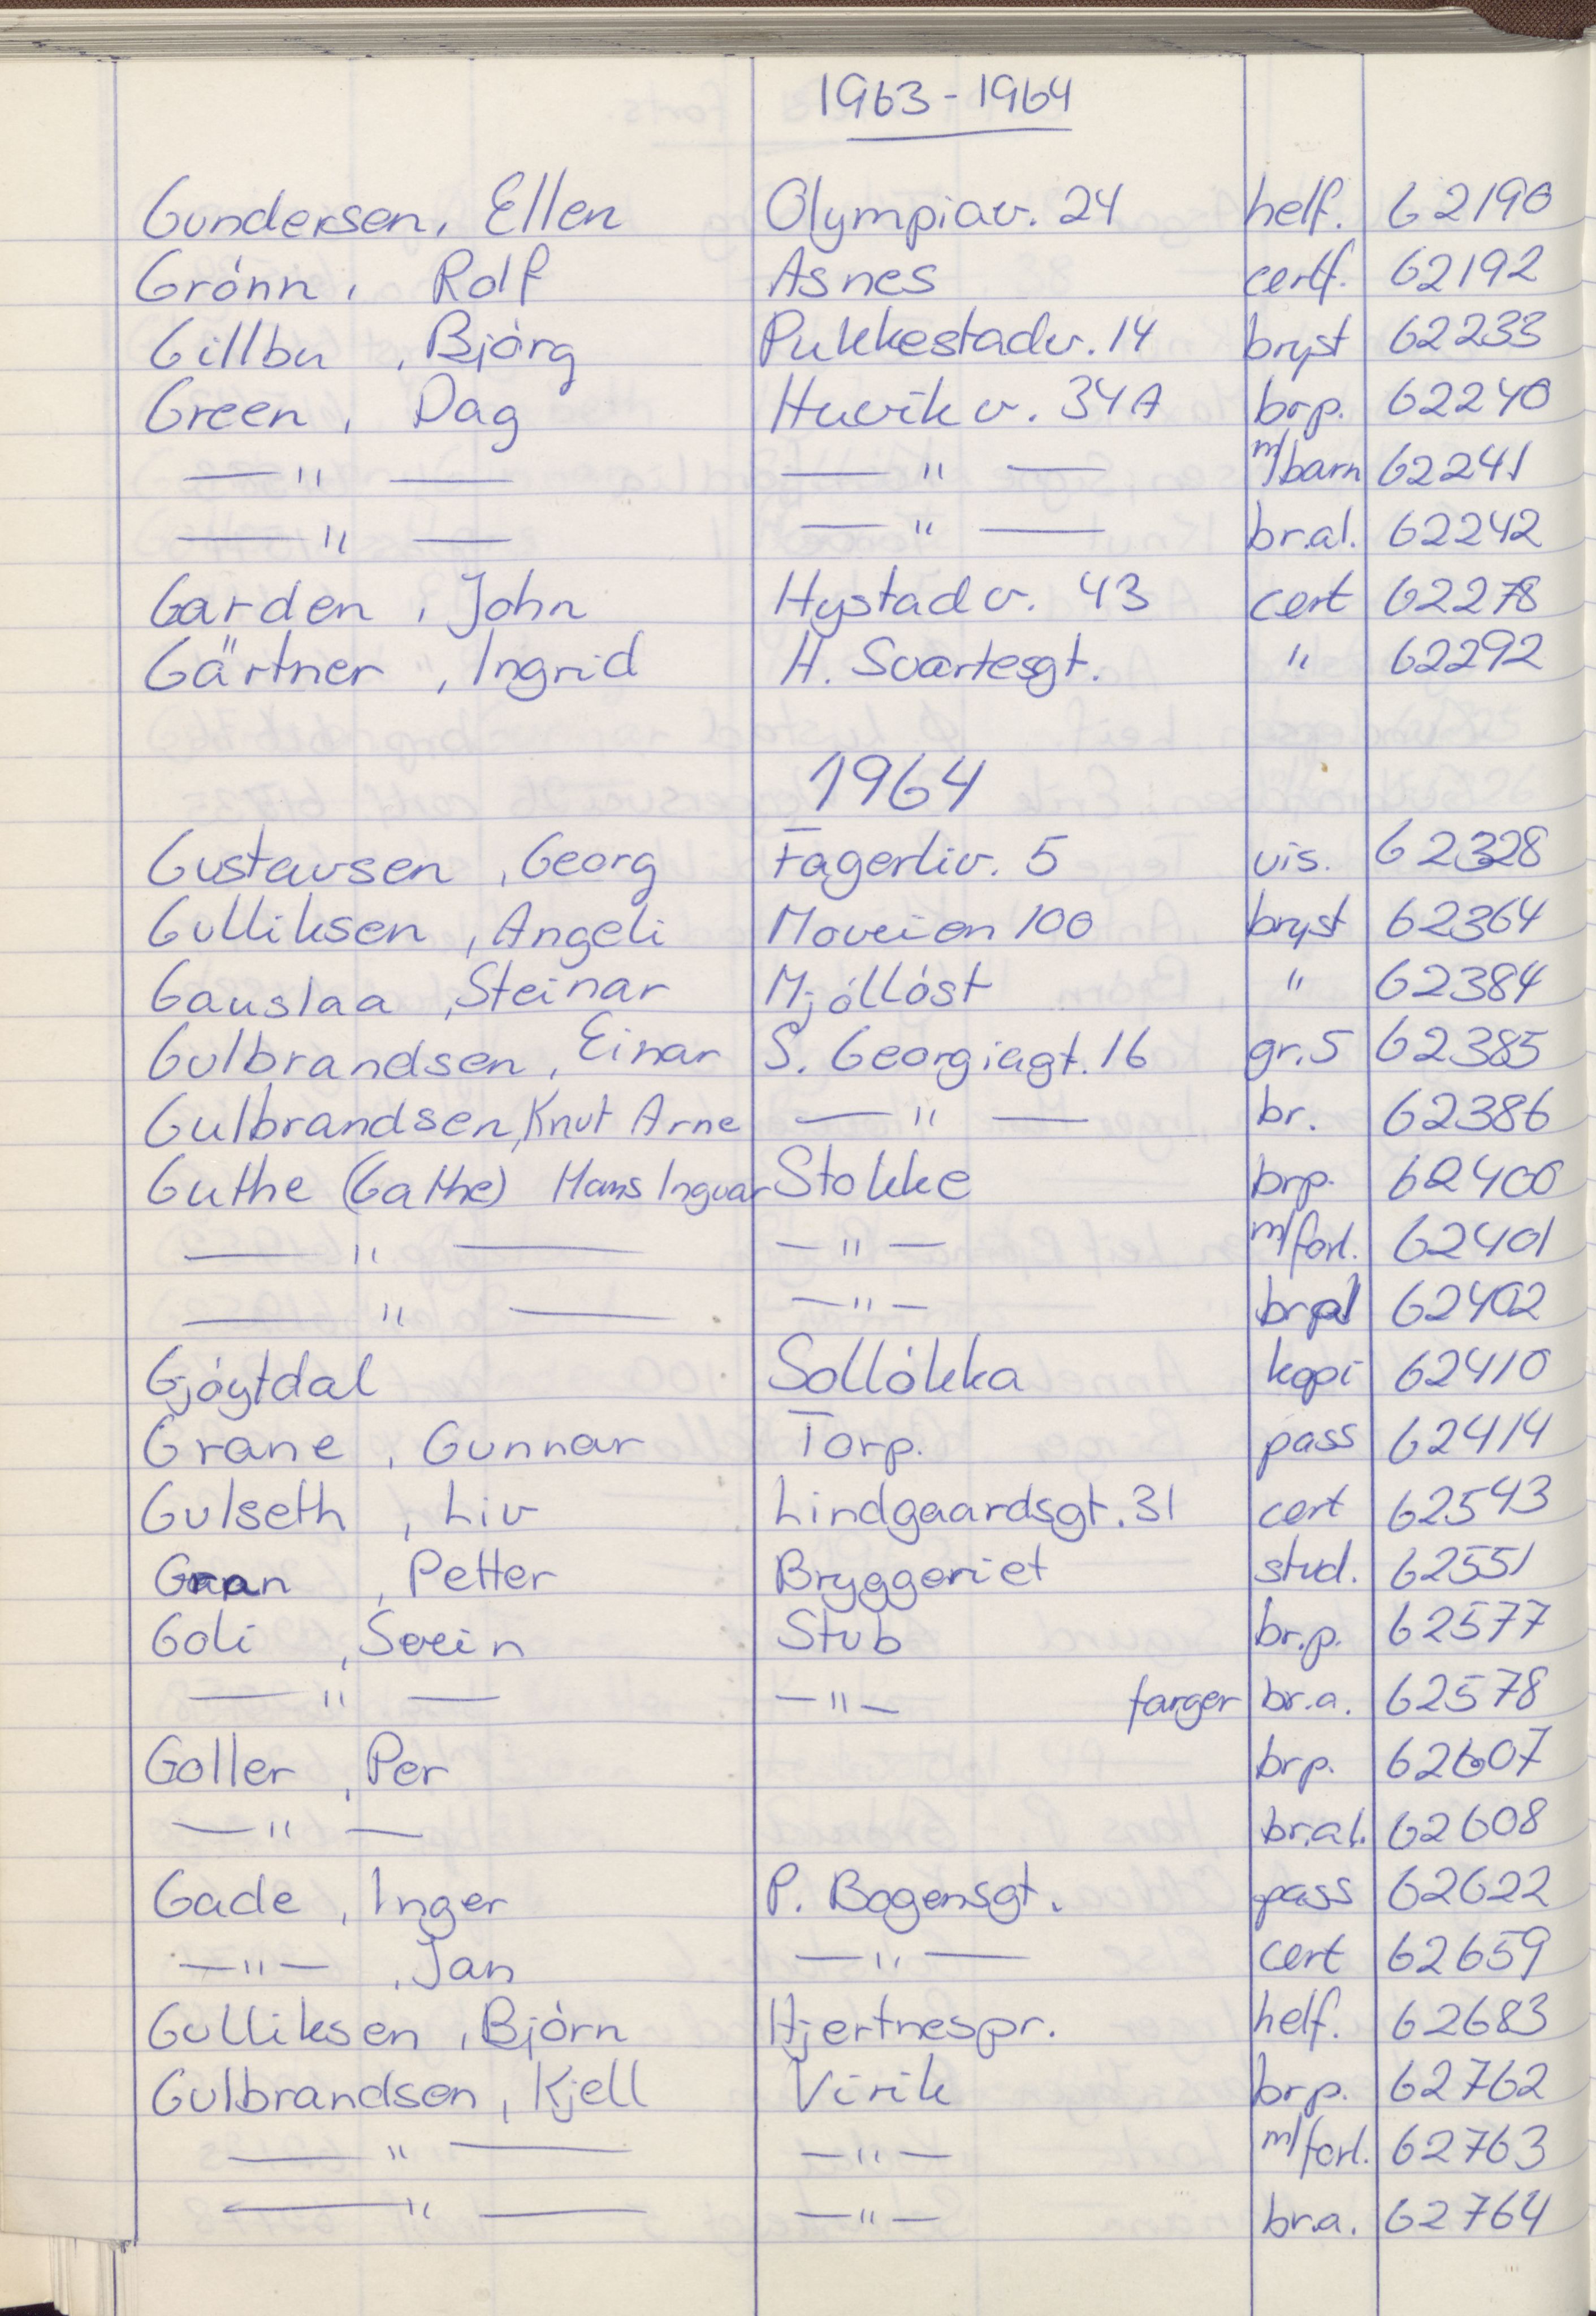 1963 - 1964
Gundersen, Ellen Olympiav. 24 helf. 62190
Grónn, Rolf Asnes certf. 62192
Gillbu, Bjórg Pukkestadv. 14 bryst 62233
Green, Dag Huvik v. 34A brp. 62240
— " — — " — m/barn 62241
— " — — " — br.al. 62242
Garden, John Hystad v. 43 cert 62278
Gärtner, Ingrid H. Svartesgt. " 62292
1964
Gustavsen, Georg Fagerliv. 5 vis. 62328
Gulliksen, Angeli Moveien 100 bryst 62364
Gauslaa, Steinar Mjóllóst " 62384
Gulbrandsen, Einar S. Georgiagt. 16 gr. 5 62385
Gulbrandsen, Knut Arne — " — br. 62386
Guthe (Gathe) Hans Ingvar Stokke brp. 62400
— " — — " — m/forl. 62401
— " — — " — bral 62402
Gjóytdal Sollókka kopi 62410
Grane, Gunnar Torp. pass 62414
Gulseth, Liv Lindgaardsgt. 31 cert 62543
Gran, Petter Bryggeriet stud. 62551
Goli, Svein Stub br.p. 62577
— " — — " — farger br.a. 62578
Goller, Per brp. 62607
— " — br.al. 62608
Gade, Inger P. Bogensgt. pass 62622
— " —, Jan — " — cert 62659
Gulliksen, Bjórn Hjertnespr. helf. 62683
Gulbrandsen, Kjell Virik brp. 62762
— " — — " — m/forl. 62763
— " — — " — br.a. 62764